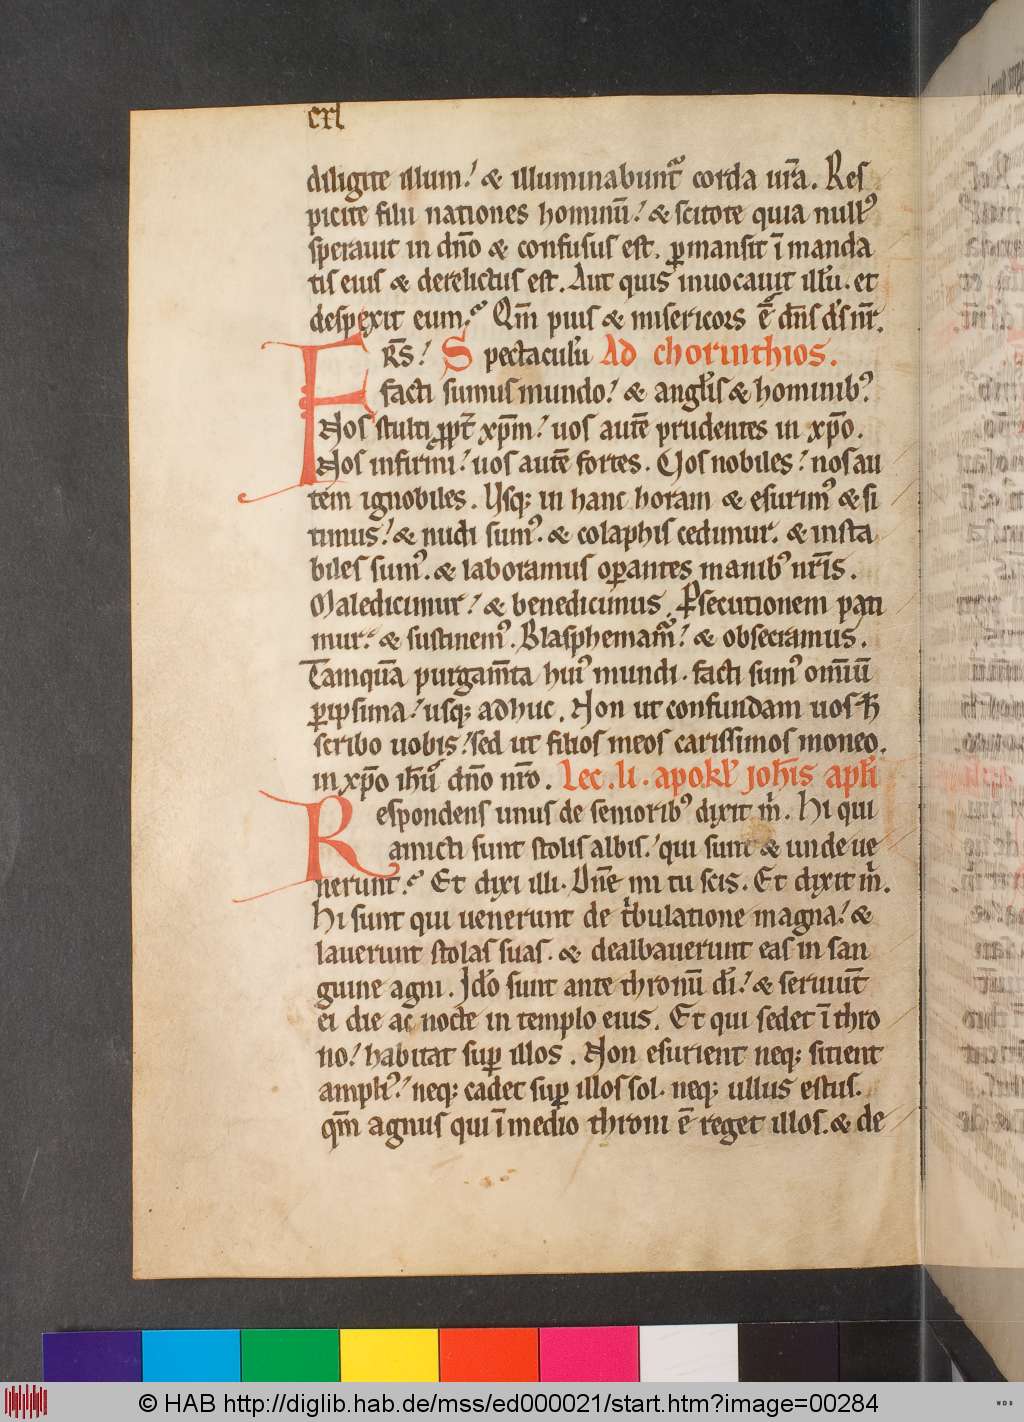 cxl
diligite illum. & illuminabunt᷑ corda ur̄a. Res
picite filii nationes hominū. & scitote quia null᷒
sperauit in dn̄o & confusus est. ꝑmansit ī manda
tis eius & derelictus est. Aut quis inuocauit illū. et
despexit eum. Qm̄ pius & misericors ē dn̄s ds̄ nr̄.
FRS̄. Spectaculū Ad chorinthios.
facti sumus mundo. & angl̄is & hominib᷒
Nos stulti ꝓpt̄ xp̄m. uos autē prudentes in xp̄o.
Nos infirmi. uos autē fortes. Uos nobiles. nos au
tem ignobiles. Usq; in hanc horam & esurim᷒ & si
timus. & nudi sum᷒. & colaphis cedimur. & insta
biles sum᷒. & laboramus oꝑantes manib᷒ nr̄is.
Maledicimur. & benedicimus. Ꝑsecutionem pati
mur. & sustinem᷒. Blasphemam᷑. & obsecramus.
Tamquā purgam̄ta hui᷒ mundi. facti sum᷒ omiū
ꝑipsima. usq; adhuc. Non ut confundam uos h̄
scribo uobis. sed ut filios meos carissimos moneo.
in xp̄o ih̄u dn̄o nr̄o. Lec. li. apokl̄ joh̄is apl̄i
Respondens unus de seniorib᷒ dixit m̄. Hi qui
amicti sunt stolis albis. qui sunt & unde ue
nerunt. Et dixi illi. Dn̄e mi tu scis. Et dixit m̄.
Hi sunt qui uenerunt de tͥbulatione magna. &
lauerunt stolas suas. & dealbauerunt eas in san
guine agni. Jdō sunt ante thronū dī. & seruiūt
ei die ac nocte in templo eius. Et qui sedet ī thro
no. habitat suꝑ illos. Non esurient neq; sitient
ampli᷒. neq; cadet suꝑ illos sol. neq; ullus estus.
qm̄ agnus qui ī medio throni ē reget illos. & de
© HAB http://diglib.hab.de/mss/ed000021/start.htm?image=00284